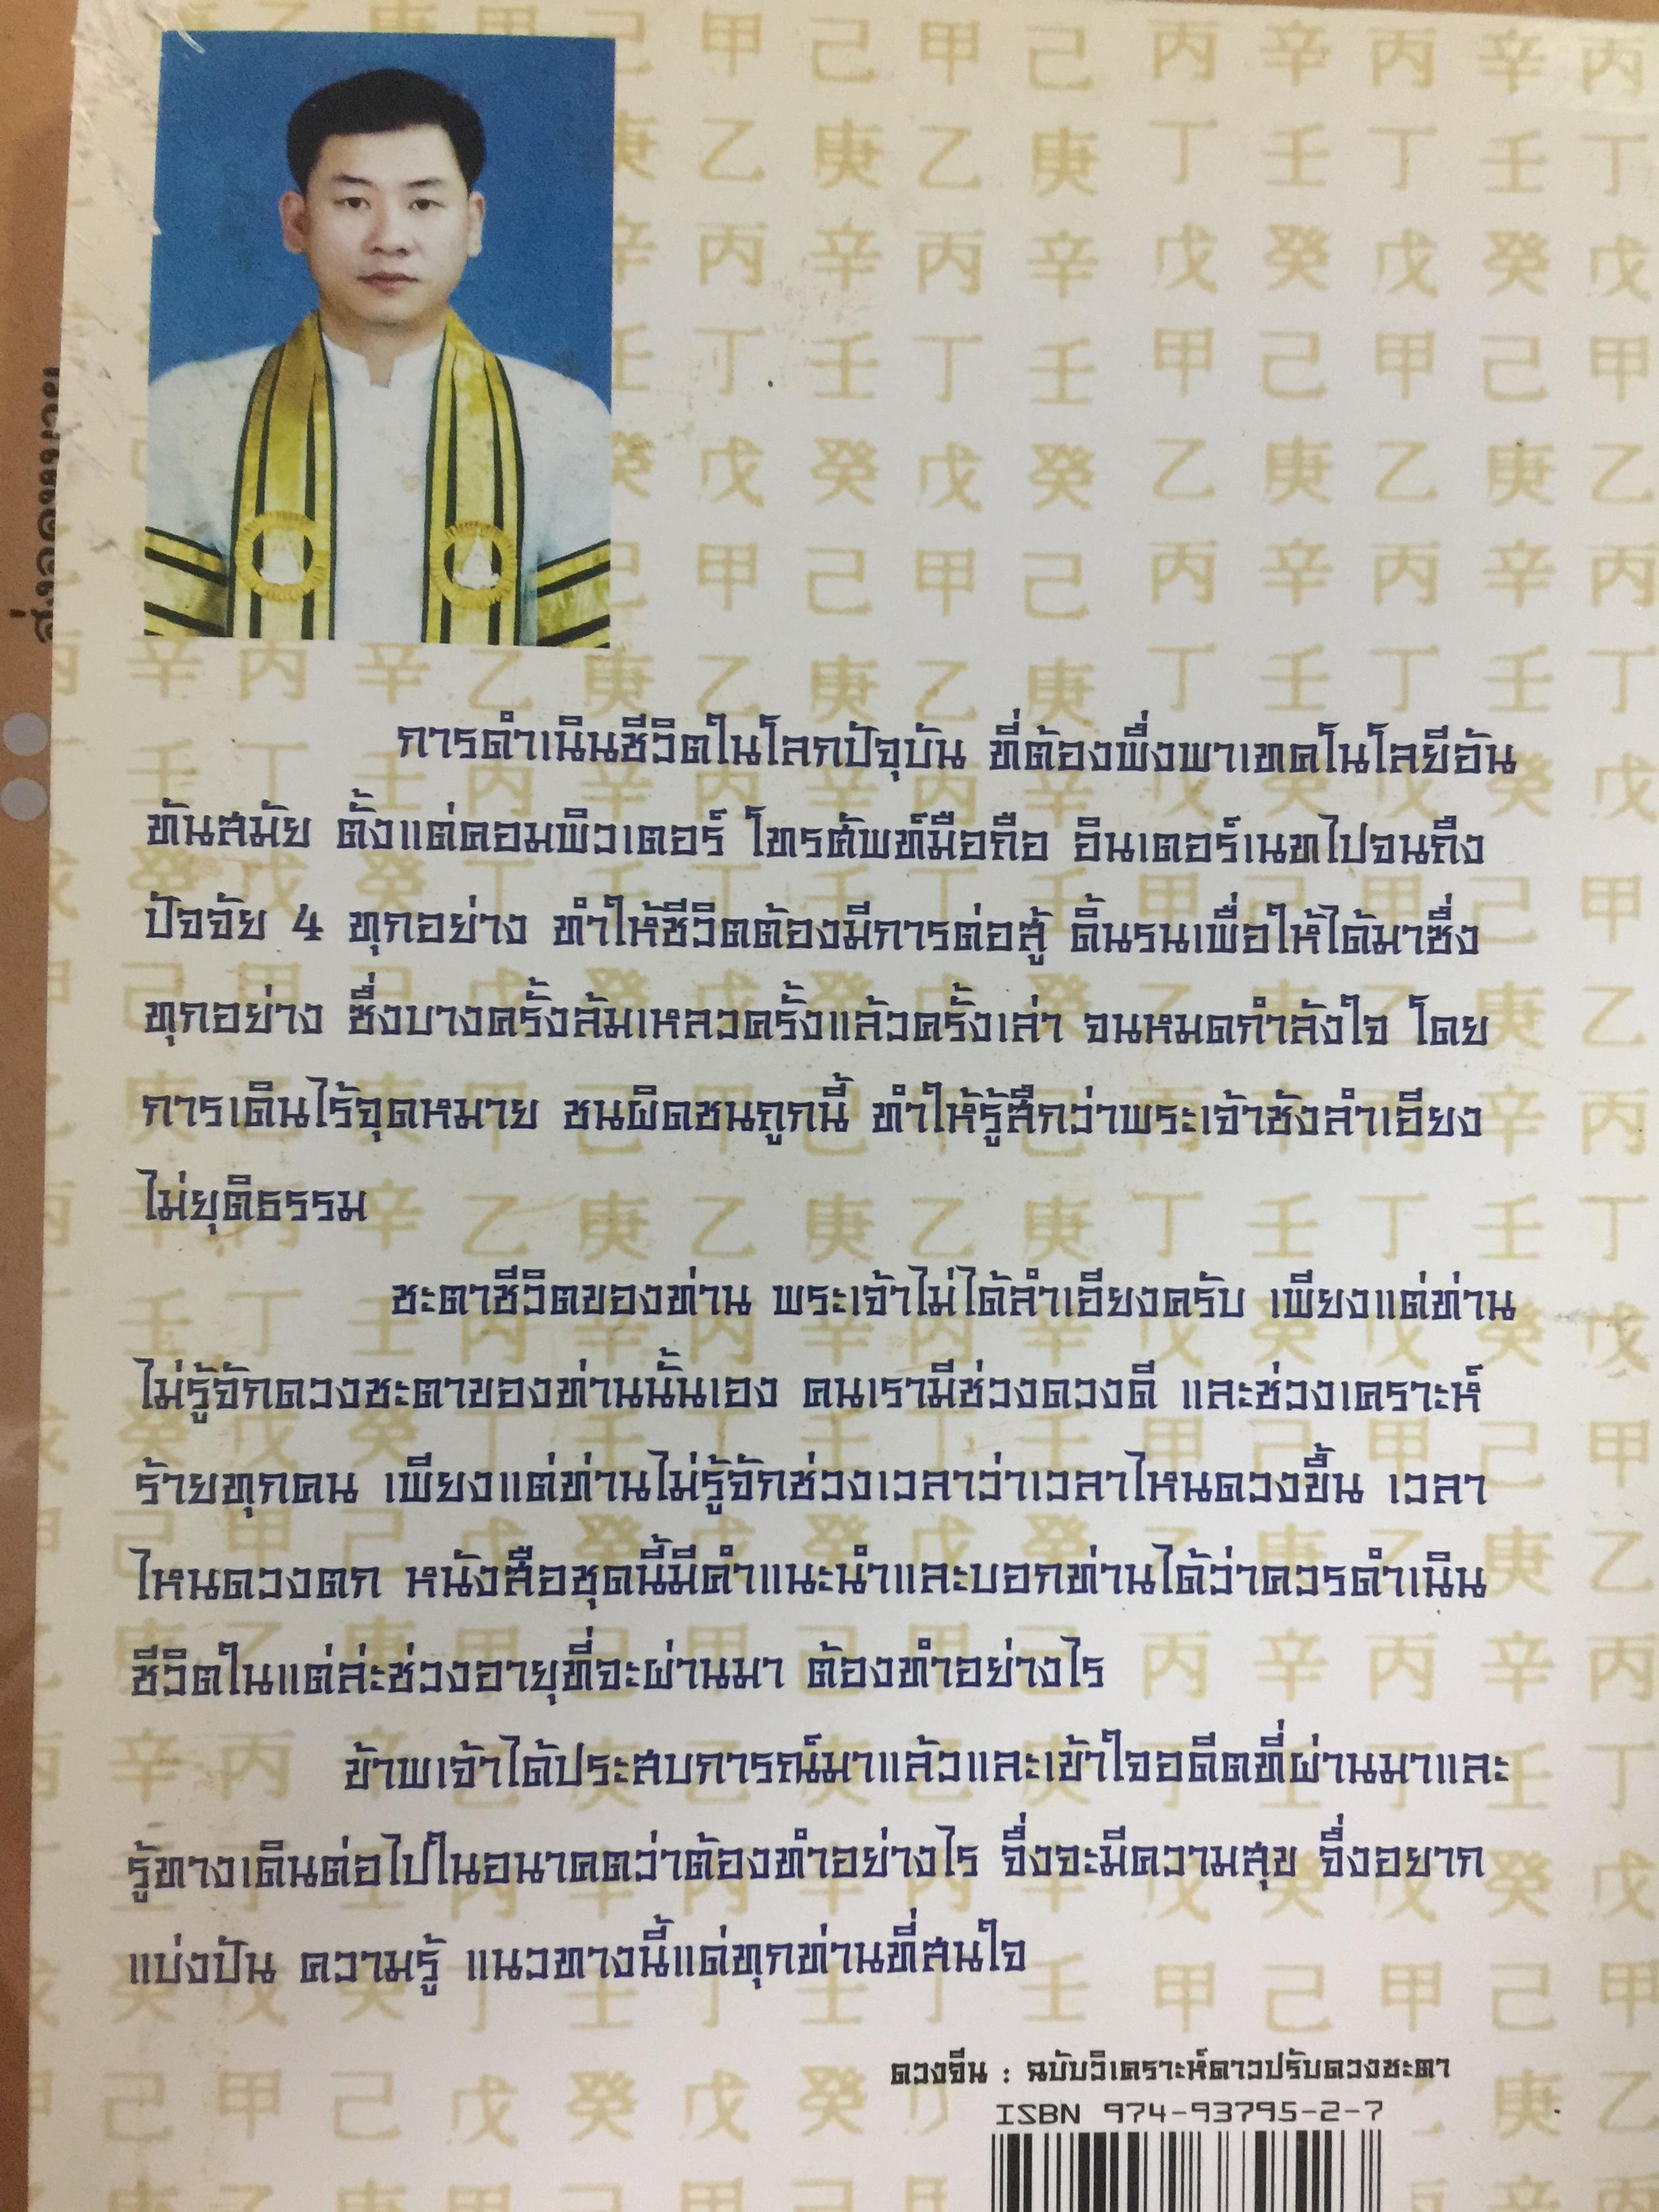 การดำเนินชีวิตในโลกปัจจุบัน ที่ต้องพึ่งพาเทคโนโลยีอัน
ทันสมัย ตั้งแต่คอมพิวเตอร์ โทรศัพท์มือถือ อินเตอร์เนทไปจนถึง
ปัจจัย 4 ทุกอย่าง ทำให้ชีวิตต้องมีการต่อสู้ ดิ้นรนเพื่อให้ได้มาซึ่ง
ทุกอย่าง ซึ่งบางครั้งล้มเหลวครั้งแล้วครั้งเล่า จนหมดกำลังใจ โดย
การเดินไร้จุดหมาย ชนผิดชนถูกนี้ ทำให้รู้สึกว่าพระเจ้าช่างลำเอียง
ไม่ยุติธรรม
ชะตาชีวิตของท่าน พระเจ้าไม่ได้ลำเอียงครับ เพียงแต่ท่าน
ไม่รู้จักดวงชะตาของท่านนั้นเอง คนเรามีช่วงดวงดี และช่วงเคราะห์
ร้ายทุกคน เพียงแต่ท่านไม่รู้จักช่วงเวลาว่าเวลาไหนดวงขึ้น เวลา
ไหนดวงตก หนังสือชุดนี้มีคำแนะนำและบอกท่านได้ว่าควรดำเนิน
ชีวิตในแต่ล่ะช่วงอายุที่จะผ่านมา ต้องทำอย่างไร
ข้าพเจ้าได้ประสบการณ์มาแล้วและเข้าใจอดีตที่ผ่านมาและ
รู้ทางเดินต่อไปในอนาคตว่าต้องทำอย่างไร จึ่งจะมีความสุข จึ่งอยาก
แบ่งปัน ความรู้ แนวทางนี้แด่ทุกท่านที่สนใจ
ดวงจีน : ฉบับวิเคราะห์ดาวปรับดวงชะตา
ISBN 974-93795-2-7